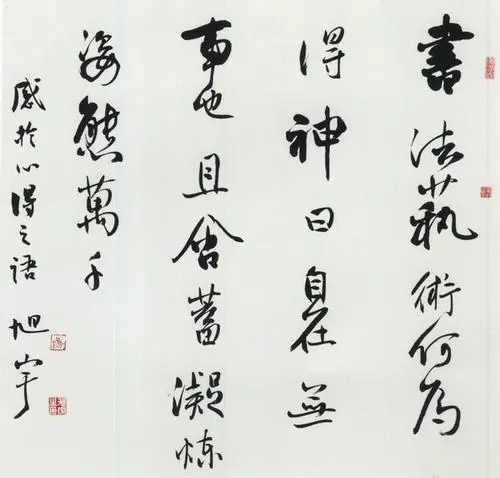 書法藝術何為
得神曰自在無
也且含蓄凝煉
姿態萬千
感於心得之語 旭宇